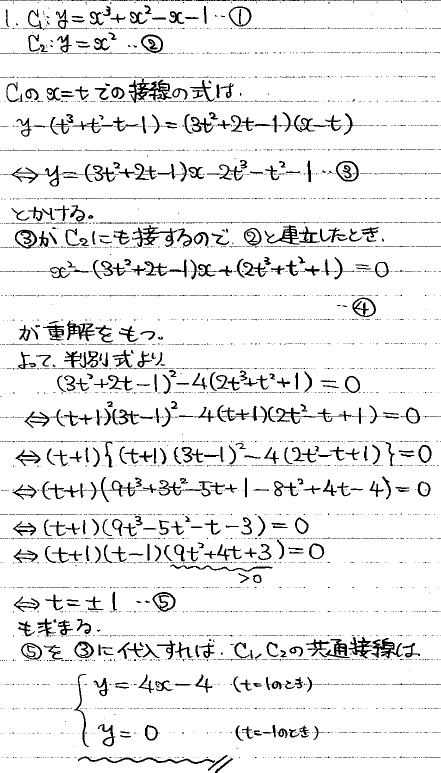 1. C₁: y = x³+x²-x-1 …①
C₂: y = x² …②
C₁のx=tでの接線の式は、
y-(t³+t²-t-1) = (3t²+2t-1)(x-t)
⇔ y = (3t²+2t-1)x-2t³-t²-1 …③
とかける。
③がC₂にも接するので、②と連立したとき、
x²-(3t²+2t-1)x+(2t³+t²+1) = 0
…④
が重解をもつ。
よって、判別式より
(3t²+2t-1)²-4(2t³+t²+1) = 0
⇔ (t+1)²(3t-1)²-4(t+1)(2t²-t+1) = 0
⇔ (t+1){(t+1)(3t-1)²-4(2t²-t+1)} = 0
⇔ (t+1)(9t³+3t²-5t+1-8t²+4t-4) = 0
⇔ (t+1)(9t³-5t²-t-3) = 0
⇔ (t+1)(t-1)(9t²+4t+3) = 0
>0
⇔ t = ±1 …⑤
も求まる。
⑤を③に代入すれば、C₁, C₂の共通接線は
{ y = 4x-4 (t=1のとき)
y = 0 (t=-1のとき)